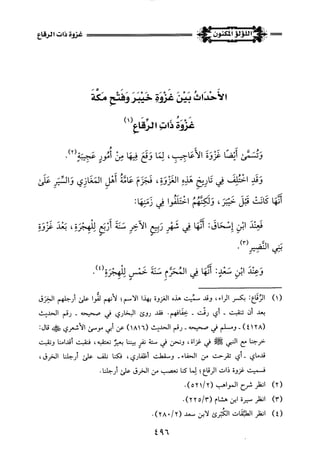 غزوة ذات الرقاع
اللؤلؤ المكنون
الأَحْدَاثُ بَيْنَ غَزْوَةِ خَيْبَرَ وَفَتْحِ مَكَّةَ
غَزْوَةُ ذَاتِ الرِّقَاعِ (١)
وَتُسَمَّى أَيْضًا غَزْوَةَ الأَعَاجِيبِ، لِمَا وَقَعَ فِيهَا مِنْ أُمُورٍ عَجِيبَةٍ (٢).
وَقَدِ اخْتُلِفَ فِي تَارِيخِ هَذِهِ الغَزْوَةِ، فَجَزَمَ عَامَّةُ أَهْلِ المَغَازِي وَالسِّيَرِ عَلَى
أَنَّهَا كَانَتْ قَبْلَ خَيْبَرَ، وَلَكِنَّهُمُ اخْتَلَفُوا فِي زَمَنِهَا:
فَعِنْدَ ابْنِ إِسْحَاقَ: أَنَّهَا فِي شَهْرِ رَبِيعٍ الآخِرِ سَنَةَ أَرْبَعٍ لِلْهِجْرَةِ، بَعْدَ غَزْوَةِ
بَنِي النَّضِيرِ (٣).
وَعِنْدَ ابْنِ سَعْدٍ: أَنَّهَا فِي المُحَرَّمِ سَنَةَ خَمْسٍ لِلْهِجْرَةِ (٤).
(١) الرِّقَاع: بكسر الراء، وقد سميت هذه الغزوة بهذا الاسم؛ لأنهم لفُّوا على أرجلهم الخِرَق
بعد أن تنقبت - أي رقّت - خِفافهم. فقد روى البخاري في صحيحه - رقم الحديث
(٤١٢٨) - ومسلم في صحيحه - رقم الحديث (١٨١٦) عن أبي موسى الأشعري ﷺ قال:
خرجنا مع النبي ﷺ في غزاة، ونحن في ستة نفر بيننا بعيرٌ نعتقبه، فنقبت أقدامنا ونقبت
قدماي - أي تقرحت من الحفاء - وسقطت أظفاري، فكنا نلف على أرجلنا الخرق،
فسميت غزوة ذات الرقاع؛ لما كنا نعصب من الخرق على أرجلنا.
(٢) انظر شرح المواهب (٥٢١/٢).
(٣) انظر سيرة ابن هشام (٢٢٥/٣).
(٤) انظر الطَّبَقَات الكُبْرى لابن سعد (٢٨٠/٢).
٤٩٦